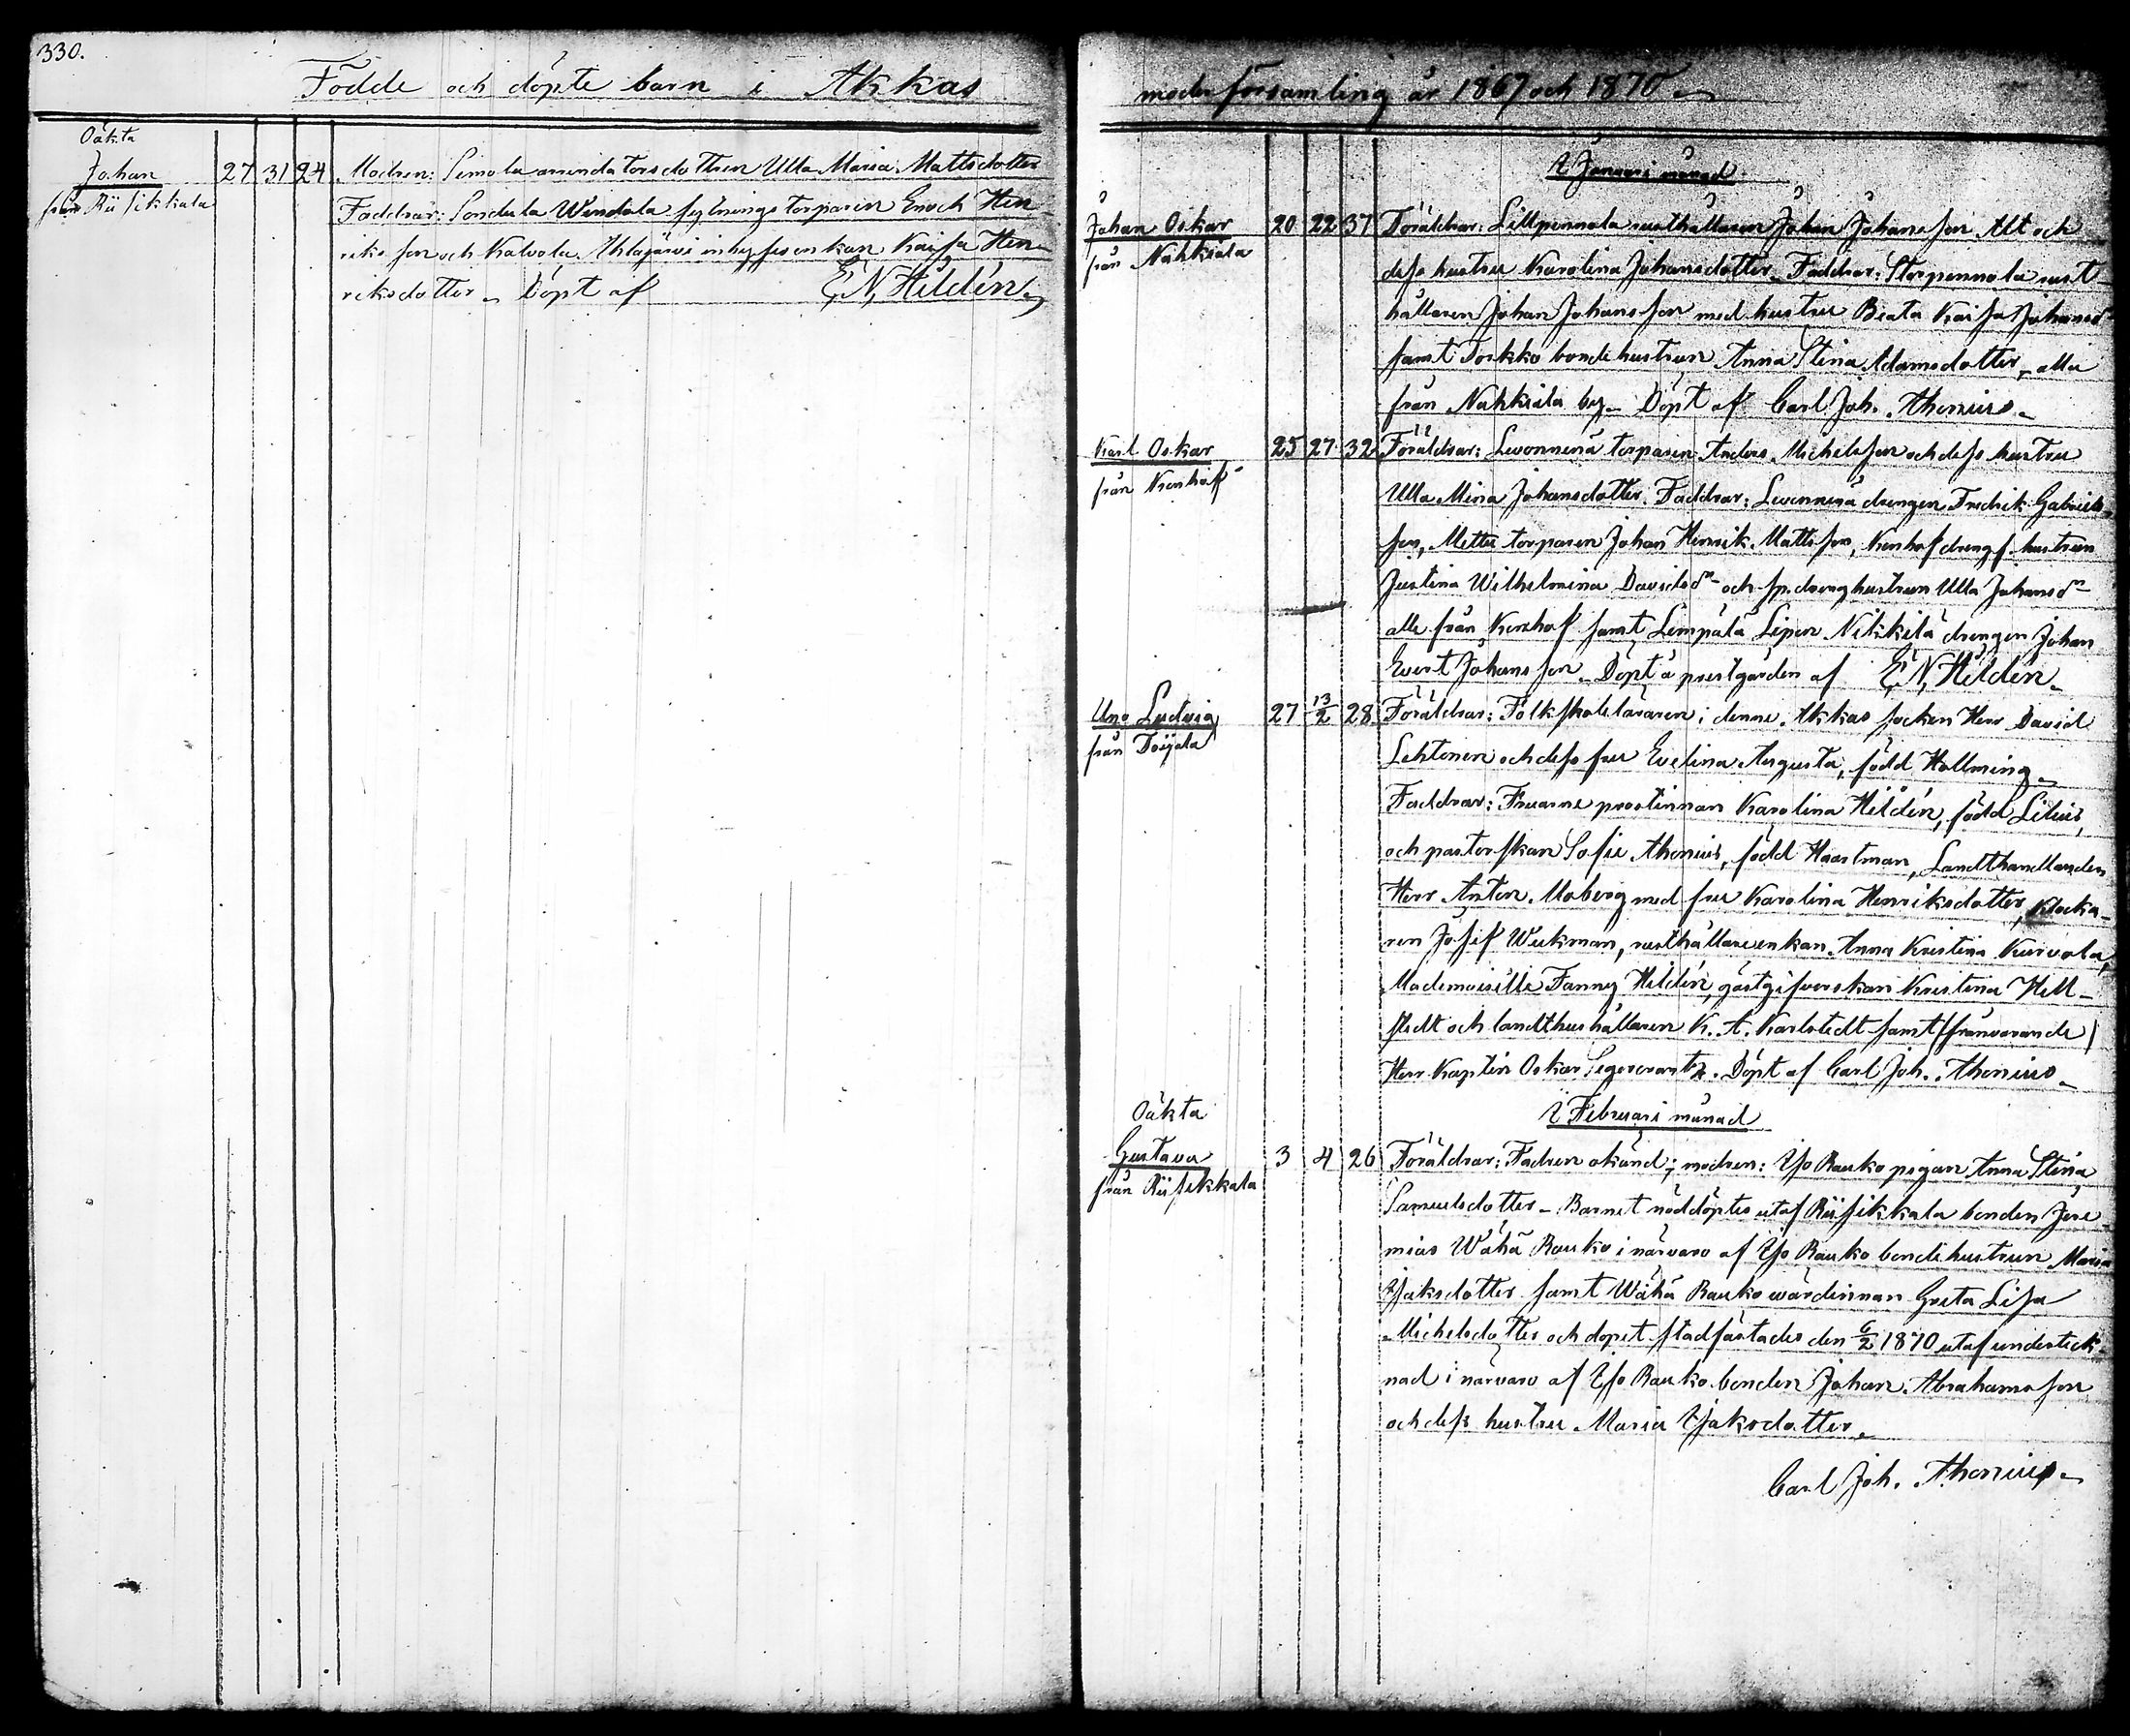 330.
Födde och döpte barn i Akkas
Oäkta
Johan 27 31 24 Modren: Simola arrendatorsdottren Ulla Maria Mattsdotter
från Riisikkala
Faddrar: Sondula Wendola sytnings torparen Enoch Hen-
riksson och Kalvola Ahlajärvi inhyses enkan Kaisa Hen-
riksdotter. Döpt af E. N. Hildén
moderförsamling år 1867 och 1870
I Januari månad
Johan Oskar 20 22 37 Föräldrar: Lillpennola rusthållaren Johan Johansson Alt och
från Nahkiala
dess hustru Karolina Johansdotter. Faddrar: Storpennola rust-
hållaren Johan Johansson med hustru Beata Kaisa Johansdr
samt Torkko bondehustrun Anna Stina Adamsdotter, alla
från Nahkiala by. Döpt af Carl Joh. Athenius.
Karl Oskar 25 27 32 Föräldrar: Levonnenä torparen Anders Michelsson och dess hustru
från Kenhof
Ulla Mina Johansdotter. Faddrar: Levonnenä drengen Fredrik Gabriels-
son, Mettu torparen Johan Henrik Mattsson, Kenhof drengs hustrun
Justina Wilhelmina Davidsdr och sp. drenghustrun Ulla Johansdr
alle från Kenhof samt Lempälä Lipon Nikkilä drengen Johan
Evert Johansson. Döpt å prestgården af E. N. Hildén.
Uno Ludvig 27 13/2 28 Föräldrar: Folkskoleläraren i denne Akkas socken Herr David
från Toijala
Lehtonen och dess fru Evelina Augusta, född Hollming.
Faddrar: Fruarne prostinnan Karolina Hildén, född Lilius,
och pastorskan Sofie Athenius, född Haartman, Landthandlanden
Herr Anton Moberg med fru Karolina Henriksdotter, Klocka-
ren Josef Weckman, rusthållareenkan Anna Kristina Kurvola,
Mademoiselle Fanny Hildén, gästgifverskan Kristina Hell-
stedt och landthushållaren K. A. Karlstedt samt /frånvarande/
Herr Kapten Oskar Segercrantz. Döpt af Carl Joh. Athenius.
I Februari månad
Oäkta
Gustava 3 4 26 Föräldrar: Fadren okänd; modren: Iso Rauko pigan Anna Stina
från Riisikkala
Samuelsdotter. Barnet nöddöptes utaf Riisikkala bonden Jere-
mias Wähä Rauko i närvaro af Iso Rauko bondehustrun Maria
Isaksdotter samt Wähä Rauko wärdinnan Greta Lisa
Michelsdotter och dopet stadfästades den 6/2 1870 utaf underteck-
nad i närvaro af Iso Rauko bonden Johan Abrahamsson
och dess hustru Maria Isaksdotter.
Carl Joh. Athenius.